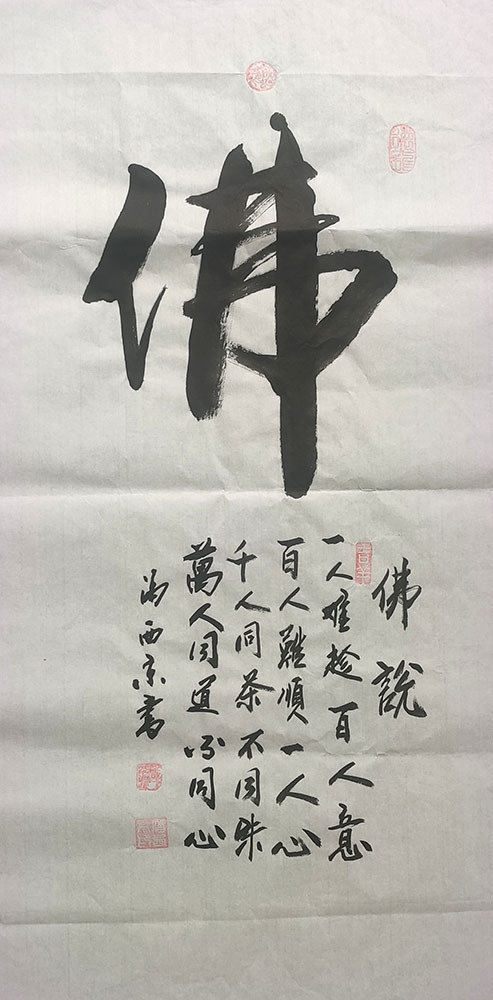 佛
佛說
一人難趁百人意
百人難順一人心
千人同茶不同味
萬人同道不同心
馮西京書